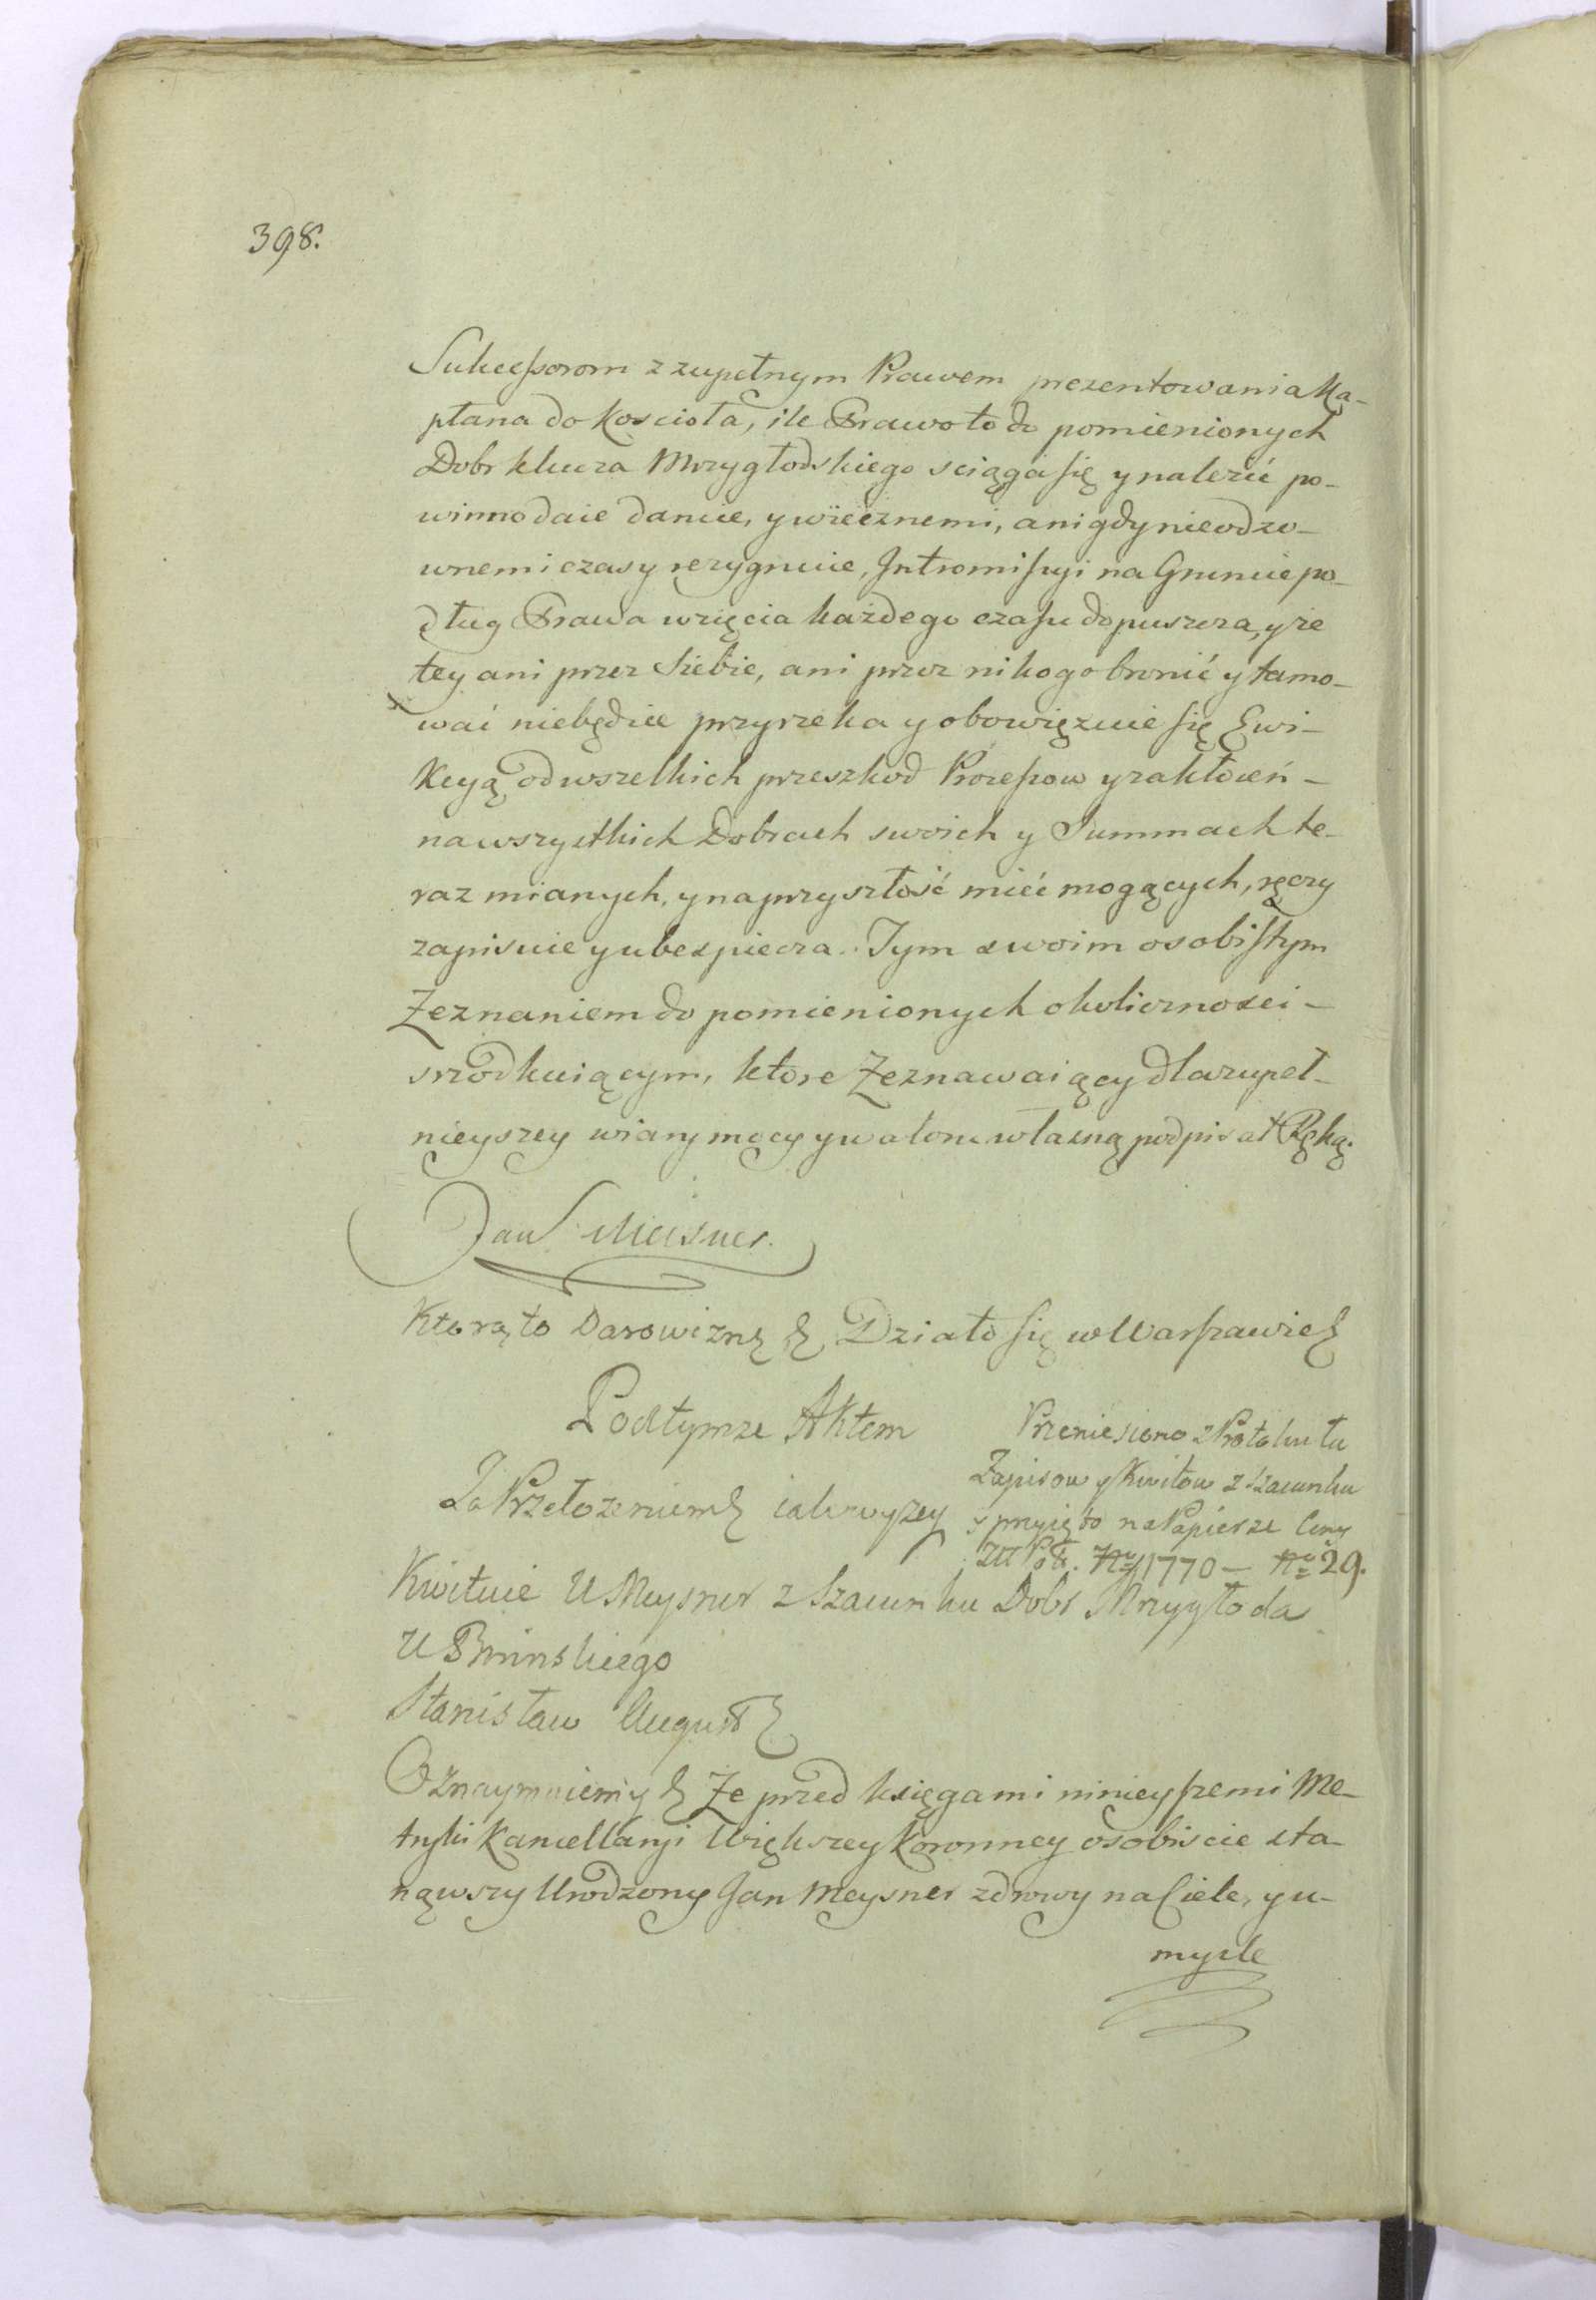 398.
Sukcessorom z zupełnym Prawem prezentowania Ka-
płana do Koscioła, ile Prawo to do pomienionych
Dobr klucza Mrzygłodskiego sciąga się y nalezić po-
winno daie daruie, y wiecznemi, a nigdy nieodzo-
wnemi czasy rezygnuie, Intromissyi na Gruncie po-
dług Prawa wzięcia każdego czasu dopuszcza, y że
tey ani przez Siebie, ani przez nikogo bronić y tamo-
wać niebędzie przyrzeka y obowięzuie się Ewi-
kcyą od wszelkich przeszkod Processow y zakłoceń –
na wszystkich Dobrach swoich y Summach te-
raz mianych, y na przyszłość mieć mogących, ręczy
zapisuie y ubespiecza. Tym swoim osobistym
Zeznaniem do pomienionych okolicznosci –
srzodkuiącym, ktore Zeznawaiący dla zupeł-
nieyszey wiary mocy y waloru własną podpisał Ręką.
Jan Meisner.
Ktorą to Darowiznę & Działo się w Warszawie &
Pod tymze Aktem
Przeniesiono z Protokułu
Zapisow y Kwitow z Szacunku
y przyięto na Papierze Ceny
Za Przełożeniem & iak wyzey
Złł Pol. 1770 — No 29.
Kwituie U Meysner z Szacunku Dobr Mrzygłoda
U Bninskiego
Stanisław August &
Oznaymuiemy & Ze przed księgami ninieyszemi Me-
tryki Kancellaryi Większey Koronney osobiscie sta-
nąwszy Urodzony Jan Meysner zdrowy na Ciele, y u-
mysle